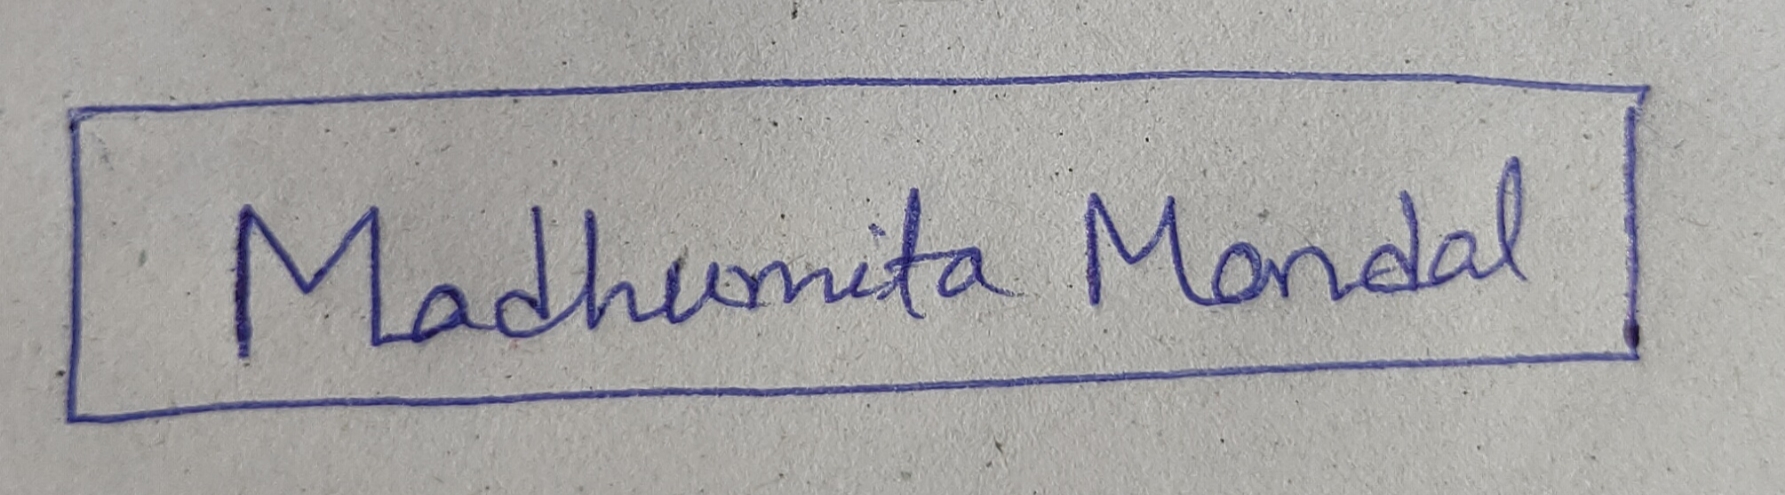 Madhumita Mondal